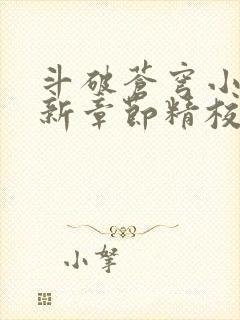 斗破苍穹小
新章节精校
小拏